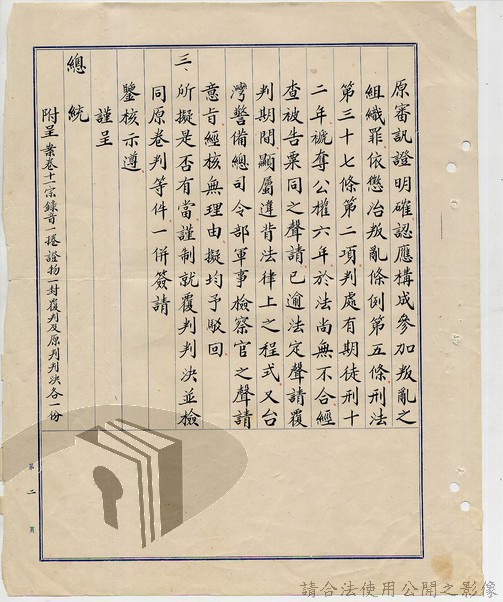 原審訊證明確認應構成參加叛亂之
組織罪依懲治叛亂條例第五條刑法
第三十七條第二項判處有期徒刑十
二年褫奪公權六年於法尚無不合經
查被告栗同之聲請已逾法定聲請覆
判期間顯屬違背法律上之程式又台
灣警備總司令部軍事檢察官之聲請
意旨經核無理由擬均予駁回
三、所擬是否有當謹制就覆判判決並檢
同原卷判等件一併簽請
鑒核示遵
謹呈
總統
附呈案卷十一宗錄音一捲證物一封覆判及原判判決各一份
第二頁
請合法使用公開之影像